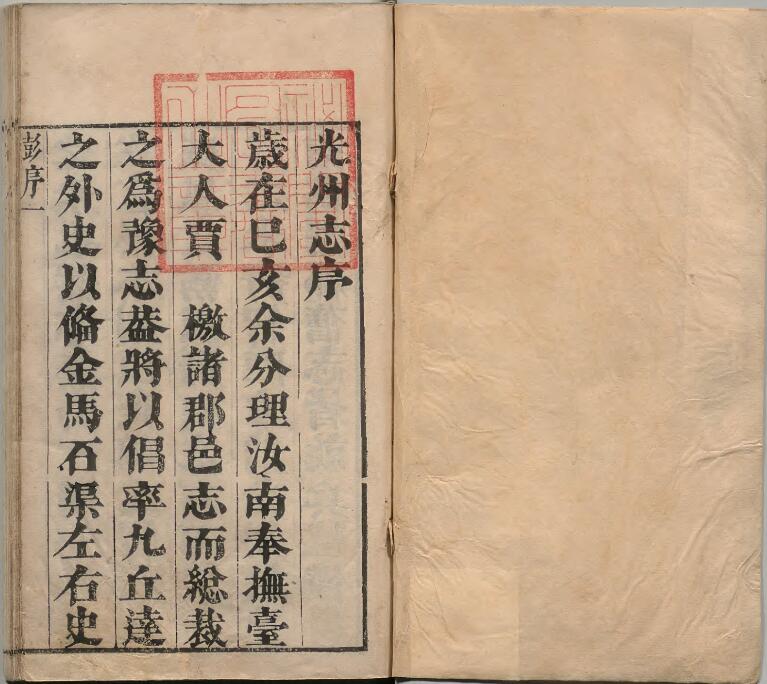 光州志序
歲在巳亥余分理汝南奉撫臺
大人賈　檄諸郡邑志而總裁
之爲豫志葢將以倡率九丘達
之外史以俻金馬石渠左右史
彭序一